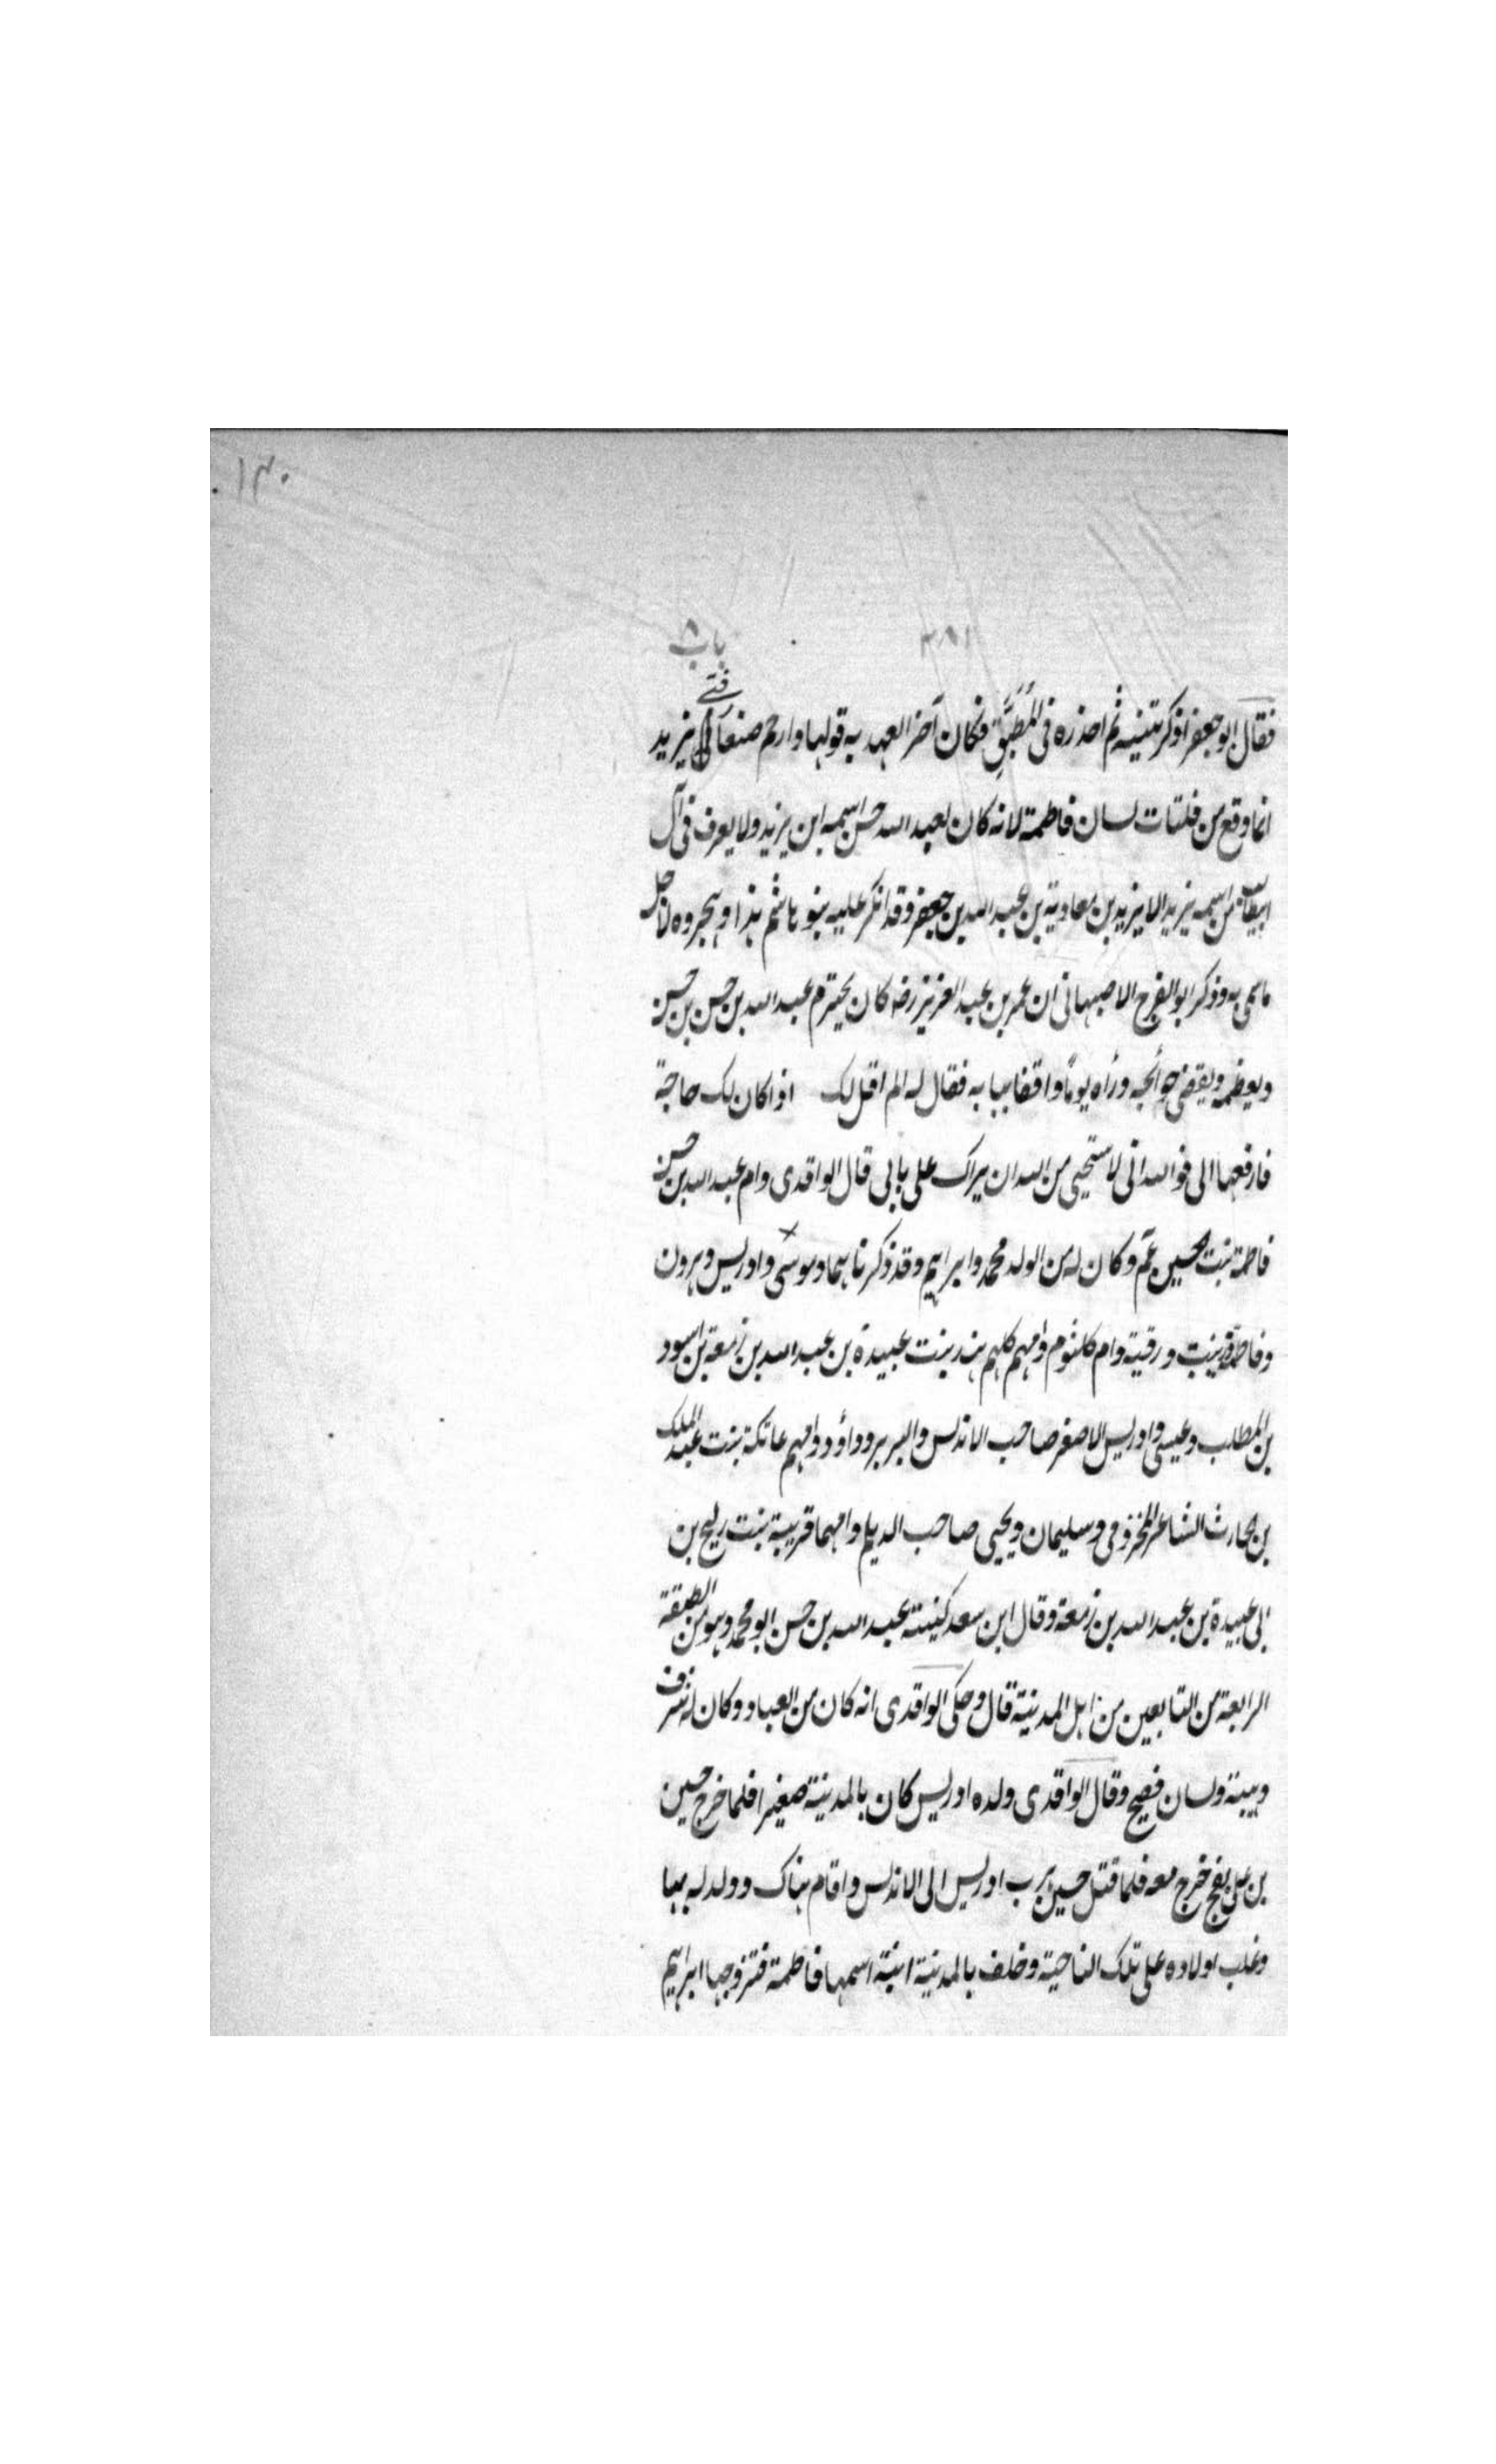 ١٣٠
٣٨١
باب ٨
فقال ابو جعفر اذكرتنيه ثم احذره فى المُطبَقِ فكان آخر العهد به قولها وارحم صنعا يزيد
انما وقع من فلتات لسان فاطمة لانه كان لعبد الله حسن اسمه ابن يزيد ولا يعرف فى آل
ابيطالب من اسمه يزيد الا يزيد بن معاوية بن عبد الله بن جعفر وقد انكر عليه بنو هاشم هذا وهجروه لاجل
ماسمى به وذكر ابو الفرج الاصبهانى ان عمر بن عبد العزيز رضه كان يحترم عبد الله بن حسن بن حسن
ويعظمه ويقضى حوائجه ورأه يوماً واقفا ببابه فقال له الم اقل لك اذا كان لك حاجة
فارفعها الى فو الله انى لاستحيى من الله ان يراك على بابى قال الواقدى وام عبد الله بن حسن
فاطمة بنت الحسين عم وكان له من الولد محمد وابراهيم وقد ذكرناهما وموسى وادريس وهرون
وفاطمة وزينب ورقية وام كلثوم وامهم كلهم هند بنت عبيدة بن عبد الله بن زمعة بن اسود
بن المطلب وعيسى وادريس الاصغر صاحب الاندلس والبربر وداؤد وامهم عاتكة بنت عبد الملك
بن الحارث الشاعر المخزومى وسليمان ويحيى صاحب الديلم وامهما قريبة بنت ربيح بن
ابى عبيدة بن عبد الله بن زمعة وقال ابن سعد كنيته عبد الله بن حسن ابو محمد وهو من الطبقة
الرابعة من التابعين من اهل المدينة قال وحكى الواقدى انه كان من العباد وكان له شرف
وهيبة ولسان فصيح وقال الواقدى ولده ادريس كان بالمدينة صغيرا فلما خرج حسين
بن على بفخ خرج معه فلما قتل حسين هرب ادريس الى الاندلس واقام هناك وولد له بها
وغلب اولاده على تلك الناحية وخلف بالمدينة ابنة اسمها فاطمة فتزوجها ابراهيم